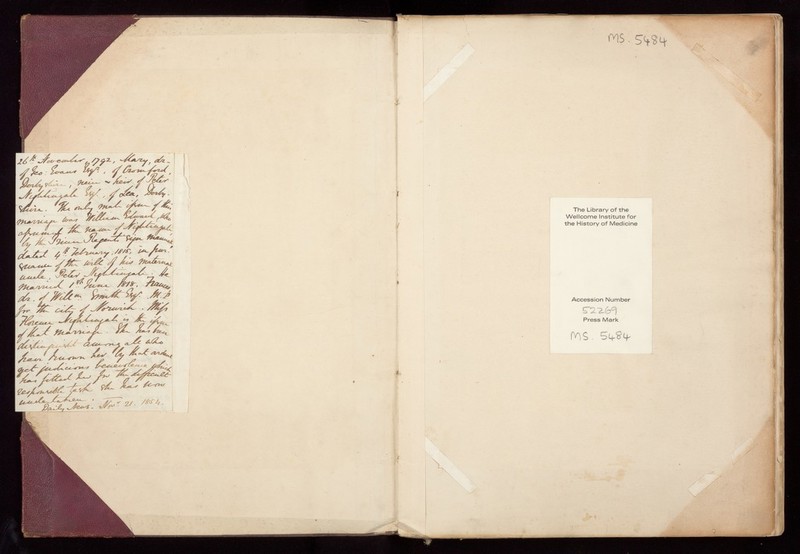 26th November, 1792, Mary, dr.
of Geo. Evans Esqr. of Cromford,
Derbyshire, niece & heir of Peter
Nightingale Esqr. of Lea, Derby-
shire. The only male issue of this
marriage was William Edward, who
assumed the name of Nightingale
by the Prince Regent's sign manual
dated 4th February, 1815, in pur-
suance of the will of his maternal
uncle, Peter Nightingale. He
married 1st June 1818, Frances
dr. of Willm Smith Esqr. M.P.
for the city of Norwich. Miss
Florence Nightingale is the
of that marriage. She has been
distinguished among all who
have known her by that
yet judicious benevolence which
has fitted her for the difficult
responsible task she has now
undertaken.
Daily News. Novr. 21. 1854.
MS. 5484
The Library of the
Wellcome Institute for
the History of Medicine
Accession Number
52269
Press Mark
MS. 5484